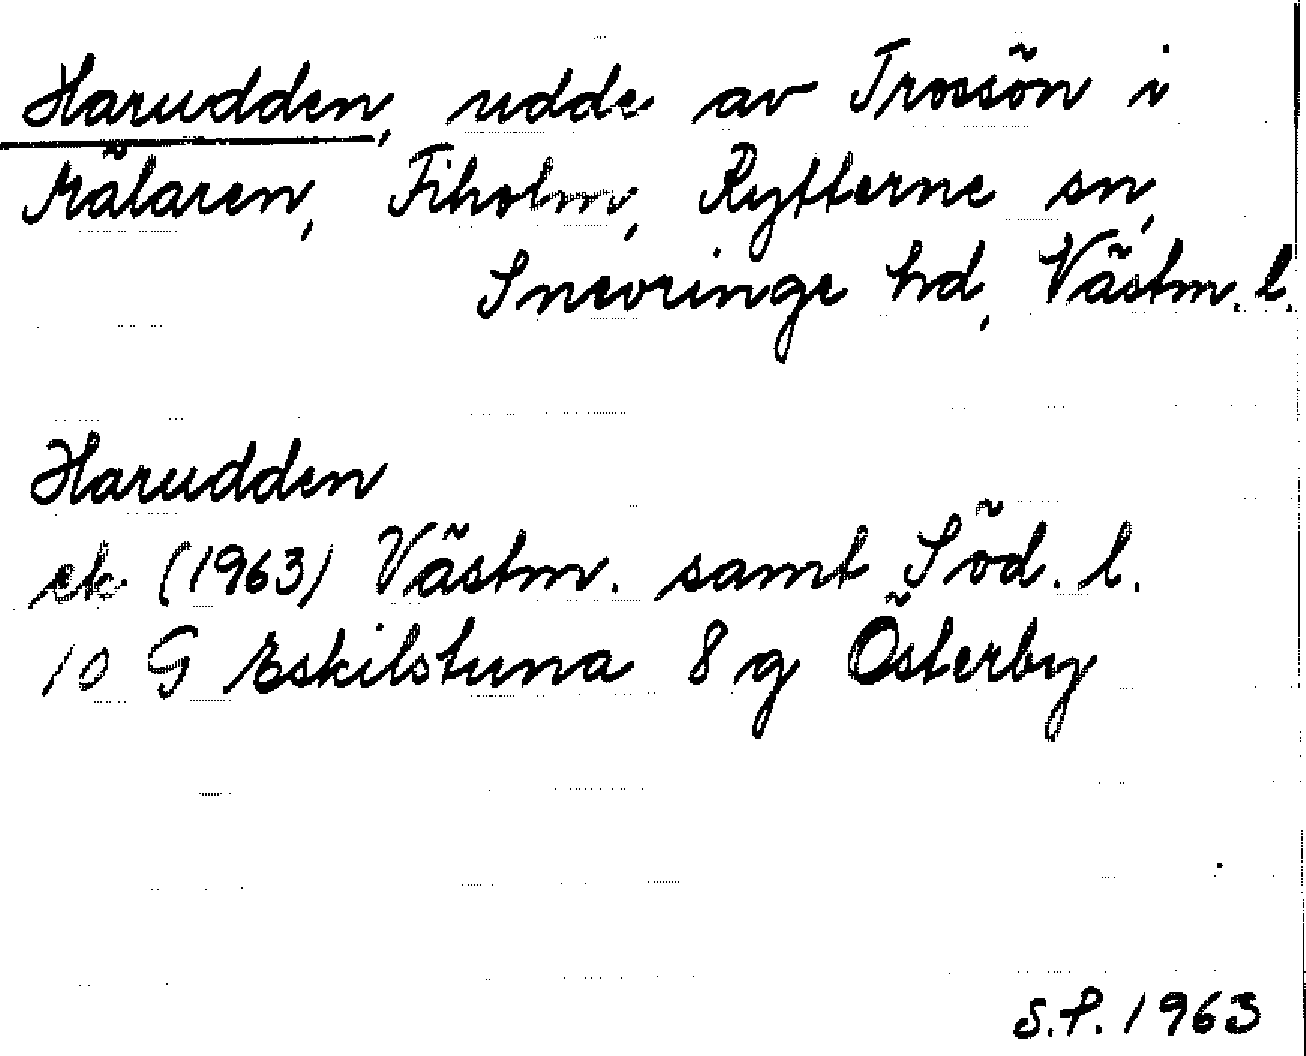 Harudden, udde av Trossön i
Mälaren, Fiholm, Rytterne sn,
Snevringe hd, Västm. l.
Harudden
ek (1963) Västm. samt Söd. l.
10 G Eskilstuna 8 g Österby
S.P. 1963